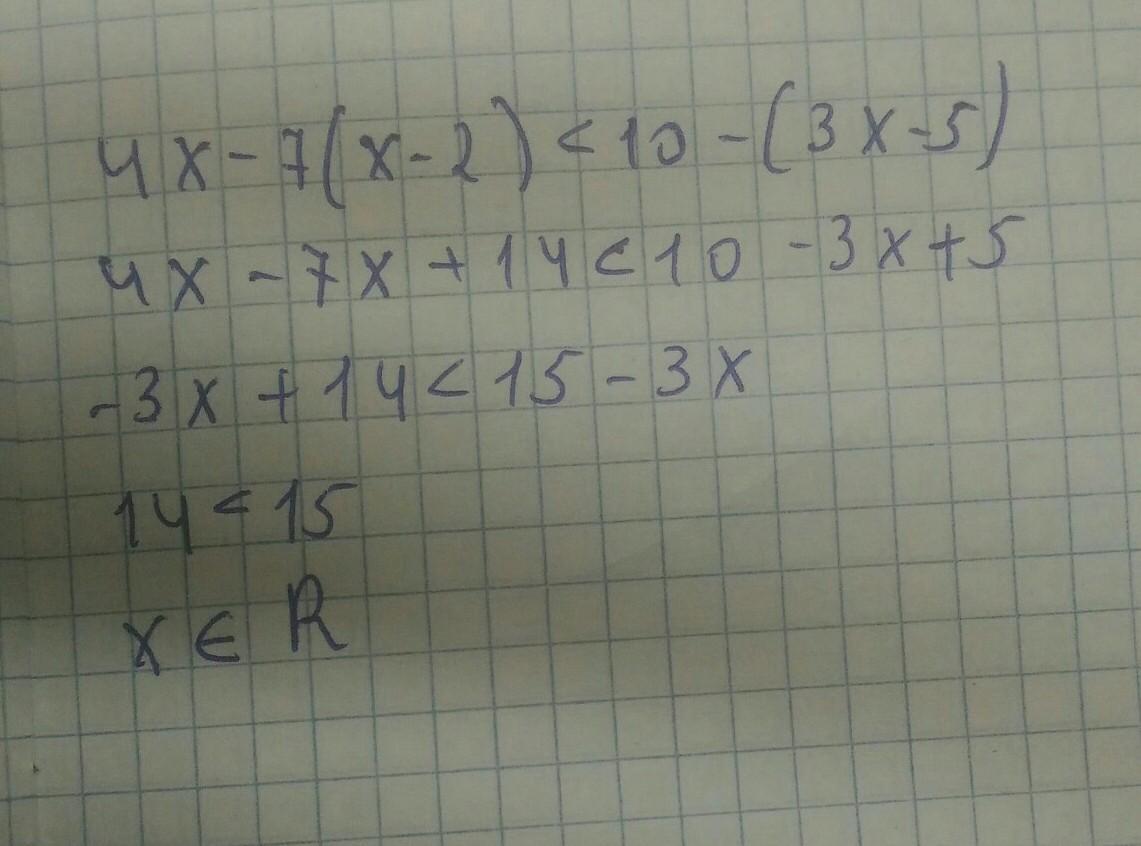 4x - 7(x - 2) < 10 - (3x - 5)
4x - 7x + 14 < 10 - 3x + 5
-3x + 14 < 15 - 3x
14 < 15
x ∈ R